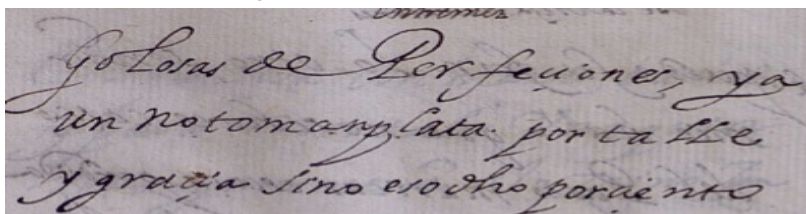 entremes
golosas de Perfeçiones, ya
un no toman plata. por talle
y graçia sino es ocho porciento